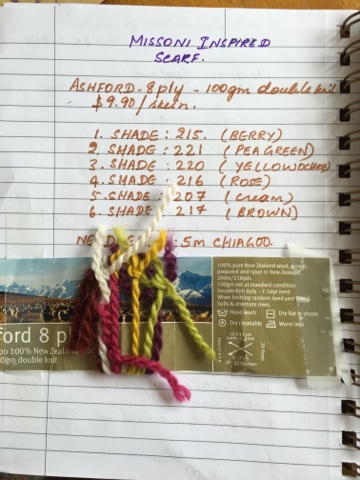 MISSONI INSPIRED
SCARF.
ASHFORD - 8ply - 100gm double knit
$9.90/skein.
1. SHADE: 215. (BERRY)
2 SHADE: 221 (PEAGREEN)
3. SHADE: 220 (YELLOWOCHRE)
4. SHADE: 216 (ROSE)
5. SHADE: 207 (cream)
6. SHADE: 217 (BROWN)
: 5m CHIAGOO.
100% pure New Zealand wool, grown,
prepared and spun in New Zealand.
200m/218yds
100gm net at standard condition
Double Knit 8ply - 7.5dpi reed
When knitting random dyed yarns
balls & alternate rows.
Hand wash
Dry flat in shade
Dry cleanable
Warm iron
ford 8 p
100% New Zealand
0gm double knit